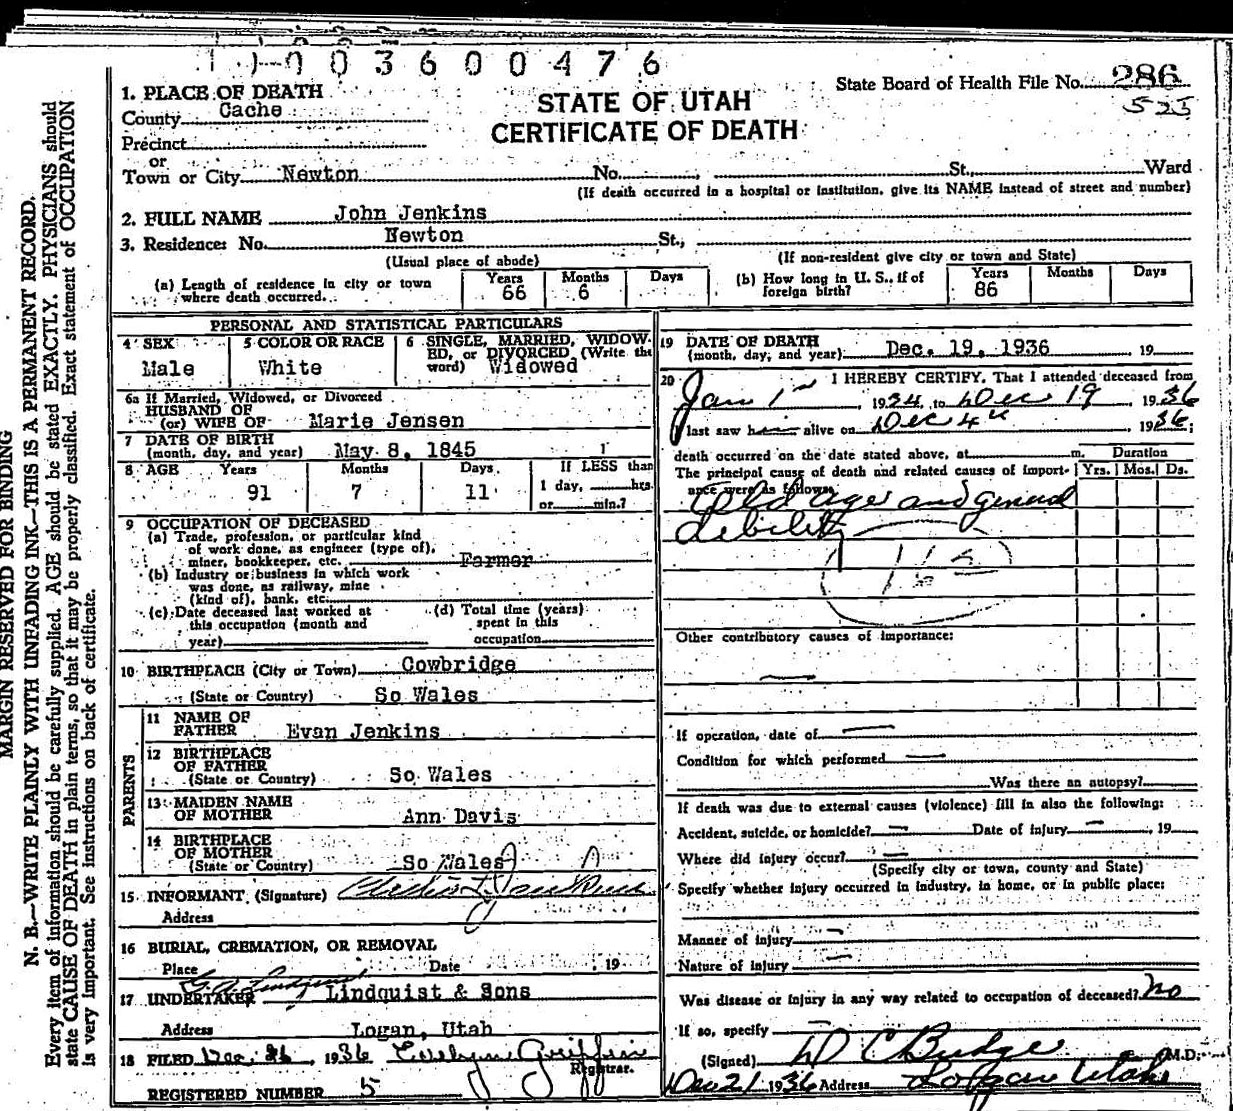 003600476
State Board of Health File No. 286
525
STATE OF UTAH
CERTIFICATE OF DEATH
1. PLACE OF DEATH
County Cache
Precinct
or
Town or City Newton No. St., Ward
(If death occurred in a hospital or institution, give its NAME instead of street and number)
2. FULL NAME John Jenkins
3. Residence: No. Newton St.,
(Usual place of abode) (If non-resident give city or town and State)
(a) Length of residence in city or town where death occurred. Years 66 Months 6 Days
(b) How long in U. S., if of foreign birth? Years 86 Months Days
PERSONAL AND STATISTICAL PARTICULARS
4 SEX Male
5 COLOR OR RACE White
6 SINGLE, MARRIED, WIDOW-
ED, or DIVORCED (Write the
word) Widowed
6a If Married, Widowed, or Divorced
HUSBAND OF
(or) WIFE OF Marie Jensen
7 DATE OF BIRTH
(month, day, and year) May 8, 1845
8 AGE Years 91 Months 7 Days 11
If LESS than
1 day, hrs.
or min.?
9 OCCUPATION OF DECEASED
(a) Trade, profession, or particular kind
of work done, as engineer (type of),
miner, bookkeeper, etc. Farmer
(b) Industry or business in which work
was done, as railway, mine
(kind of), bank, etc.
(c) Date deceased last worked at
this occupation (month and
year)
(d) Total time (years)
spent in this
occupation
10 BIRTHPLACE (City or Town) Cowbridge
(State or Country) So Wales
PARENTS
11 NAME OF
FATHER Evan Jenkins
12 BIRTHPLACE
OF FATHER
(State or Country) So Wales
13 MAIDEN NAME
OF MOTHER Ann Davis
14 BIRTHPLACE
OF MOTHER
(State or Country) So Wales
15 INFORMANT (Signature) Jenkins
Address
16 BURIAL, CREMATION, OR REMOVAL
Place Date , 19
17 UNDERTAKER Lindquist & Sons
Address Logan, Utah
18 FILED Dec. 26, 1936 Evelyn Griffin
Registrar.
REGISTERED NUMBER 5
19 DATE OF DEATH
(month, day, and year) Dec. 19, 1936 , 19
20 I HEREBY CERTIFY, That I attended deceased from
Jan 1 , 1934, to Dec 19 , 1936
I last saw h alive on Dec 4th 1936;
death occurred on the date stated above, at m.
Duration
Yrs. Mos. Ds.
The principal cause of death and related causes of import-
ance were as follows:
Old age and general
debility
Other contributory causes of importance:
If operation, date of
Condition for which performed
Was there an autopsy?
If death was due to external causes (violence) fill in also the following:
Accident, suicide, or homicide? Date of injury , 19
Where did injury occur?
(Specify city or town, county and State)
Specify whether injury occurred in industry, in home, or in public place:
Manner of injury
Nature of injury
Was disease or injury in any way related to occupation of deceased? no
If so, specify
(Signed) D C Budge M.D.
Dec 21 1936 Address Logan Utah
MARGIN RESERVED FOR BINDING
N. B.—WRITE PLAINLY WITH UNFADING INK—THIS IS A PERMANENT RECORD.
Every item of information should be carefully supplied. AGE should be stated EXACTLY. PHYSICIANS should
state CAUSE OF DEATH in plain terms, so that it may be properly classified. Exact statement of OCCUPATION
is very important. See instructions on back of certificate.